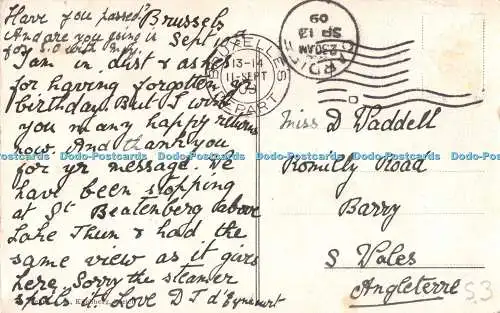 Have you passed?
Brussels
And are you going in
for S.O with
Sept 11
I am in dust & ashes
for having forgotten yr
birthday. But I wish
you many happy returns
now. And thank you
for yr message. We
have been stopping
at St Beatenberg above
Lake Thun & had the
same view as it gives
here. Sorry the steamer
spoils it. Love D J d'Eyncourt
BRUXELLES
13-14
11-SEPT
09
DEPART
CARDIFF
2 30 AM
SP 13
09
Miss D Waddell
Romilly Road
Barry
S Wales
Angleterre
5.3
Dodo-Postcards Dodo-Postcards Dodo-Postcards Dodo-Postcards Dodo-Postcards